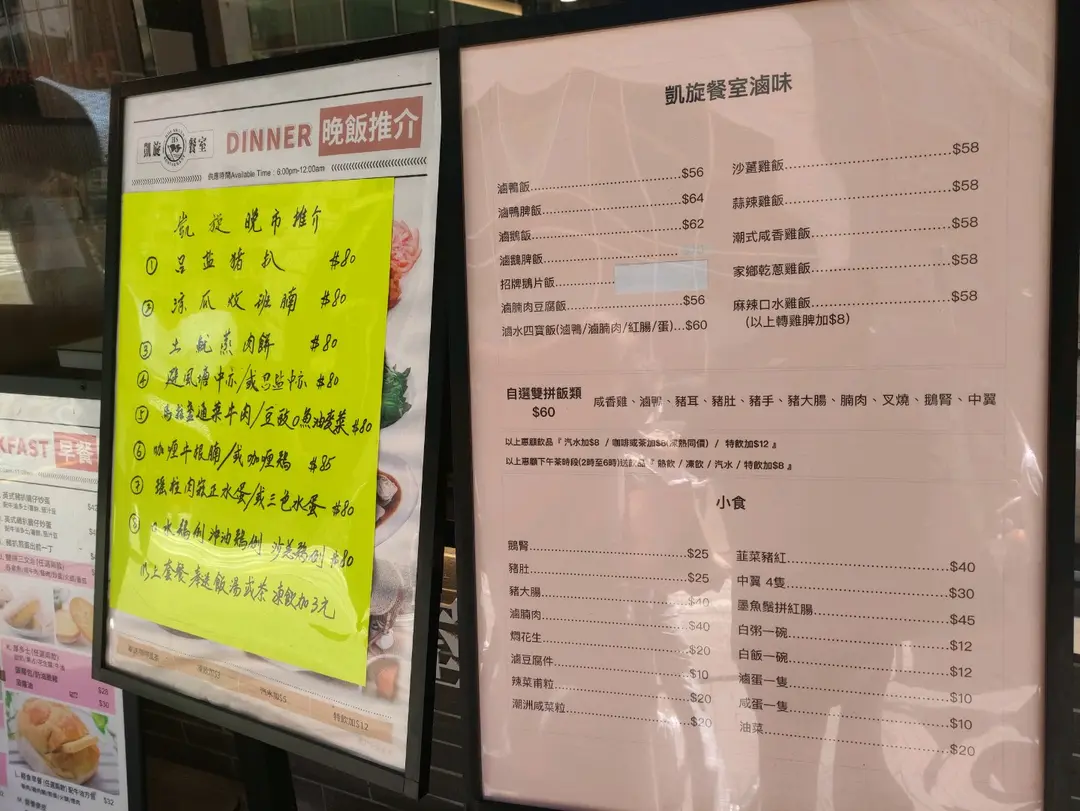 凱旋餐室
DINNER 晚飯推介
供應時間Available Time : 6:00pm-12:00am
凱旋晚市推介
① 呈盐豬扒 $80
② 涼瓜炆班腩 $80
③ 土魷蒸肉餅 $80
④ 避風塘中亦/或忌盐中亦 $80
⑤ 馬拉盞通菜牛肉/豆豉魚油麥菜 $80
⑥ 咖喱牛根腩/或咖喱鷄 $85
⑦ 瑤柱肉崧正水蛋/或三色水蛋 $80
⑧ 口水鷄例 沖油鷄例 沙姜鷄例 $80
以上套餐奉送飯湯或茶 凍飲加3元
特飲加$12
凱旋餐室滷味
滷鴨飯 $56
滷鴨脾飯 $64
滷鵝飯 $62
滷鵝脾飯
招牌鵝片飯
滷腩肉豆腐飯 $56
滷水四寶飯(滷鴨/滷腩肉/紅腸/蛋)...$60
沙薑雞飯 $58
蒜辣雞飯 $58
潮式咸香雞飯 $58
家鄉乾蔥雞飯 $58
麻辣口水雞飯 $58
(以上轉雞脾加$8)
自選雙拼飯類 $60
咸香雞、滷鴨、豬耳、豬肚、豬手、豬大腸、腩肉、叉燒、鵝腎、中翼
以上惠顧飲品『 汽水加$8 / 咖啡或茶加$8(凍熱同價) / 特飲加$12 』
以上惠顧下午茶時段(2時至6時)送飲品『 熱飲 / 凍飲 / 汽水 / 特飲加$8 』
小食
鵝腎 $25
豬肚 $25
豬大腸 $40
滷腩肉 $40
燜花生 $20
滷豆腐件 $10
辣菜甫粒 $20
潮洲咸菜粒 $20
韮菜豬紅 $40
中翼 4隻 $30
墨魚鬚拼紅腸 $45
白粥一碗 $12
白飯一碗 $12
滷蛋一隻 $10
咸蛋一隻 $10
油菜 $20
KFAST 早餐
$28
$30
$32